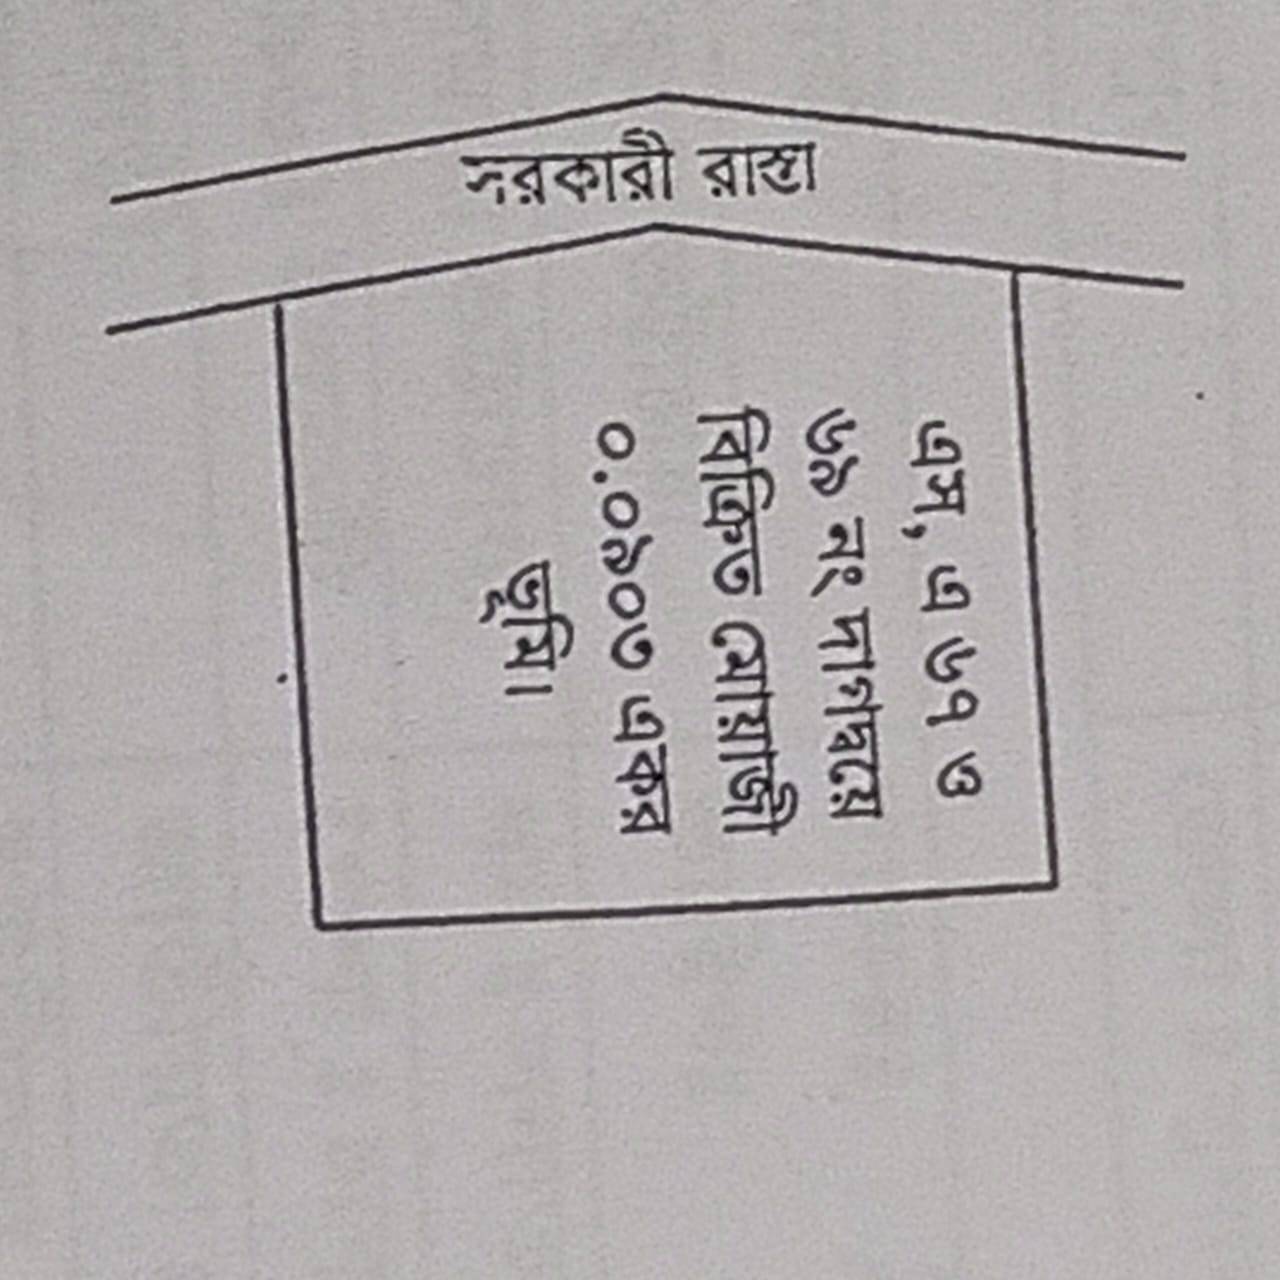 সরকারী রাস্তা
এস, এ ৬৭ ও
৬৯ নং দাগদ্বয়ে
বিক্রিত মোয়াজী
০.০৯০৩ একর
ভূমি।